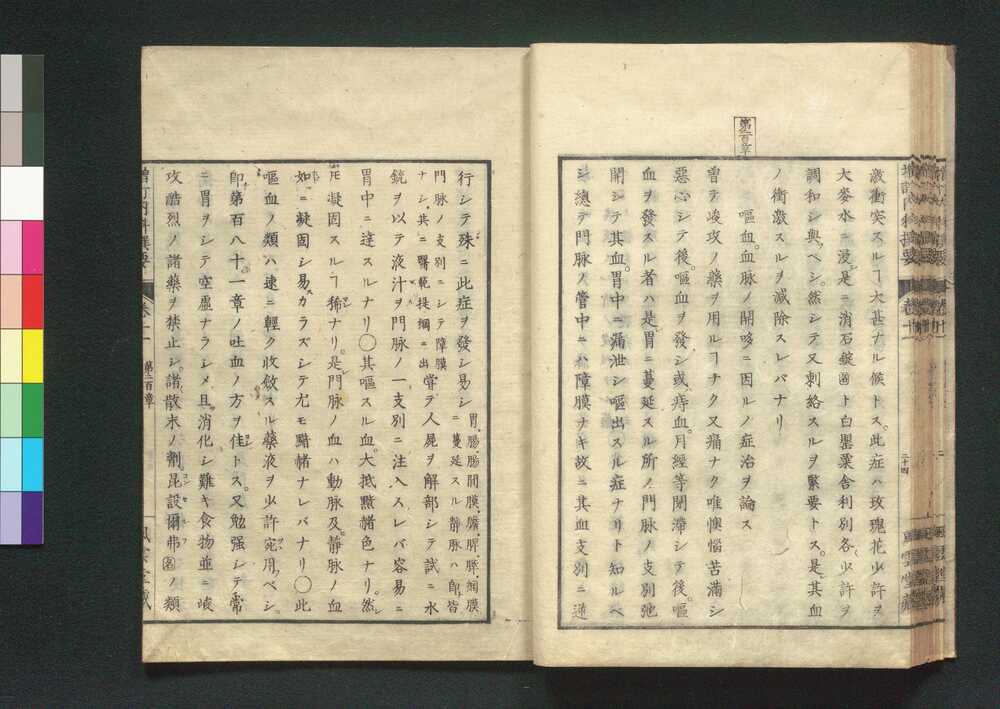 第二百章
激衝突スルヿ大甚ナル候トス。此症ハ玫瑰花少許ヲ
大麥水ニ浸シ。是ニ消石錠ト白罌粟舎利別各少許ヲ
調和シ與ベシ。然シテ又刺絡スルヲ緊要トス。是其血
ノ衝激スルヲ減除スレバナリ
嘔血。血脉ノ開哆ニ因ルノ症治ヲ論ス
曽テ峻攻ノ藥ヲ用ルヿナク又痛ナク唯懊惱苦滿シ
惡心シテ後。嘔血ヲ發シ。或痔血。月經等閉滞シテ後。嘔
血ヲ發スル者ハ是胃ニ蔓延スル所ノ門脉ノ支別弛
開シテ其血。胃中ニ漏泄シ嘔出スル症ナリト知ルベ
シ總テ門脉ノ管中ニハ障膜ナキ故ニ其血支別ニ逆
行シテ殊ニ此症ヲ發シ易シ
胃。腸。腸間膜。膵。脾。網膜
ニ蔓延スル静脉ハ即皆
門脉ノ支別ニシテ障膜
ナシ。共ニ醫範提綱ニ出
嘗テ人屍ヲ解部シテ試ニ水
銃ヲ以テ液汁ヲ門脉ノ一支別ニ注入スレバ容易ニ
胃中ニ達スルナリ〇其嘔スル血。大抵黯赭色ナリ。然
𪜈凝固スルヿ稀ナリ。是門脉ノ血ハ動脉及。静脉ノ血
如ニ凝固シ易カラズシテ尤モ黯赭ナレバナリ〇此
嘔血ノ類ハ速ニ輕ク收斂スル藥液ヲ少許宛用ベシ
即第百八十。一章ノ吐血ノ方ヲ佳トス。又勉强シテ常
ニ胃ヲシテ空虚ナラシメ且。消化シ難キ食物並ニ峻
攻酷烈ノ諸藥ヲ禁止シ。諸散末ノ劑。昆設爾弗名ノ類
卷十一
第二百章
三十四